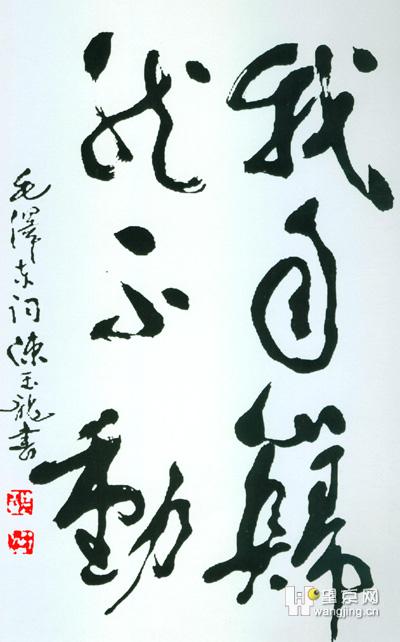 我自巋
然不動
毛澤东词陳玉龍書
望京网
wangjing.cn